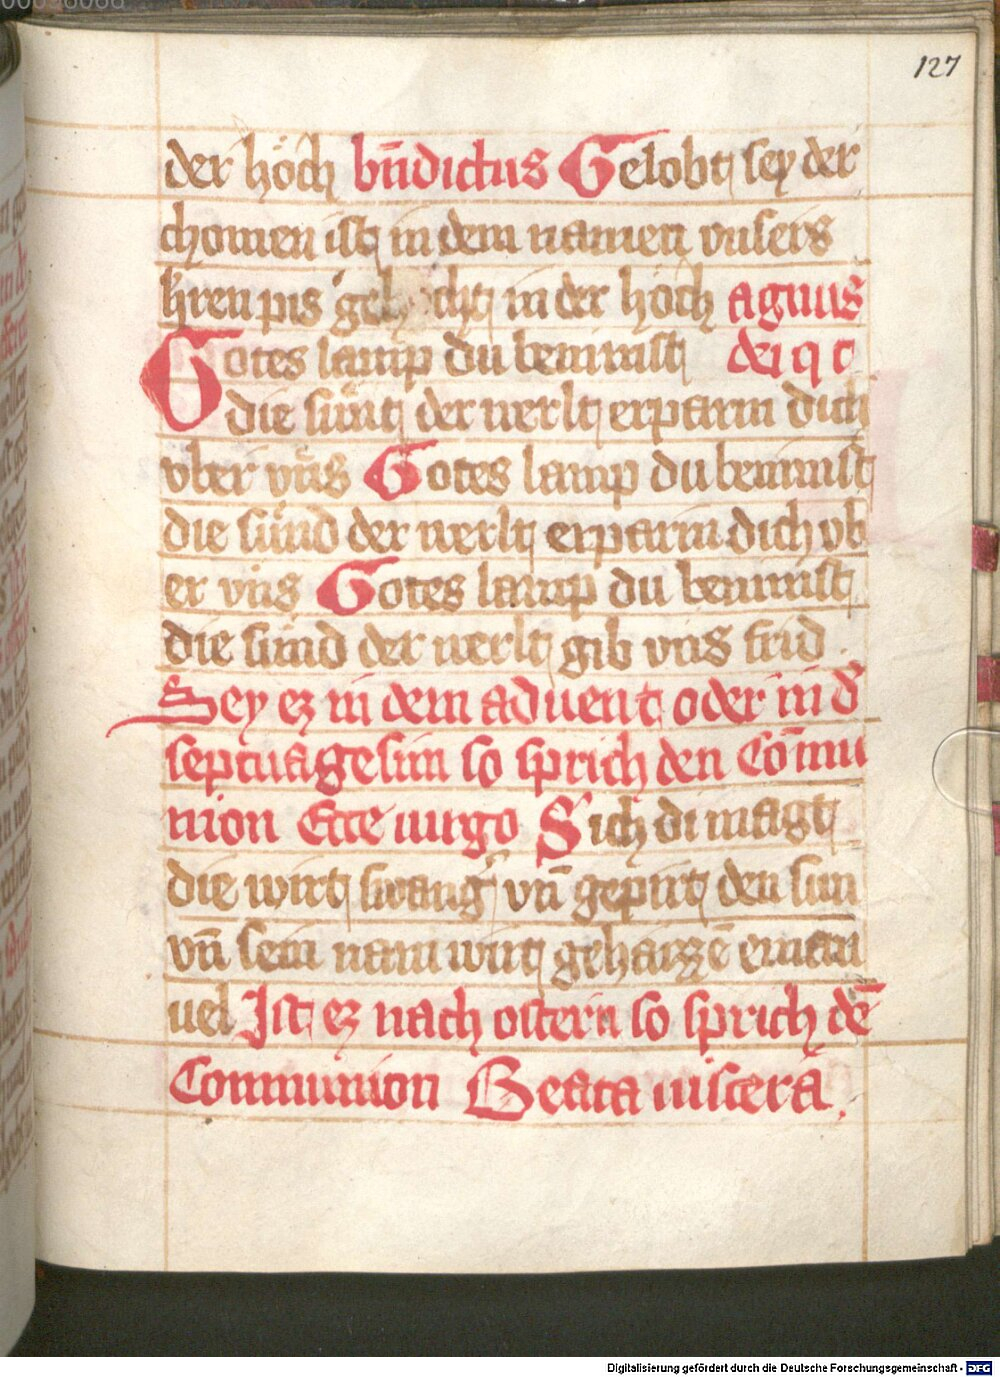 127
der höch bn̄dictus Gelobt sey der
chomen ist in dem namen vnsers
h̄ren pis in der höch agnus
Gotes lamp du benimst dei q t
die sünt der werlt erparm dich
vber vns Gotes lamp du benimst
die sünd der werlt erparm dich vb
er vns Gotes lamp du benimst
die sünd der werlt gib vns frid
Sey ez in dem aduent oder in d̄
septuagesim so sprich den Com̄u
nion Ecce uirgo Sich di magt
die wirt swanḡ vn̄ gepirt den sun
vn̄ sein nam wirt gehaizzē eman
uel Ist ez nach ostern so sprich dē
Communion Beata uiscera.
Digitalisierung gefördert durch die Deutsche Forschungsgemeinschaft - DFG